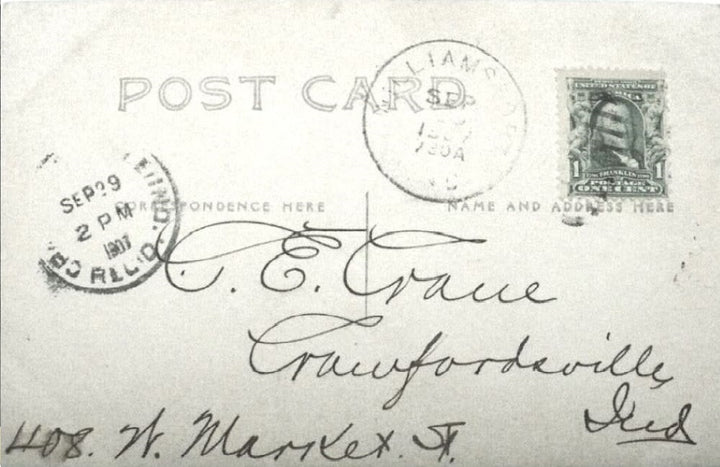 POST CARD
SEP
1907
730A
UNITED STATES OF
AMERICA
1 FRANKLIN 1
POSTAGE
ONE CENT
SEP 29
2 PM
1907
REC'D.
CORRESPONDENCE HERE
NAME AND ADDRESS HERE
C. E. Crane
Crawfordsville,
Ind
408. W. Market. St.